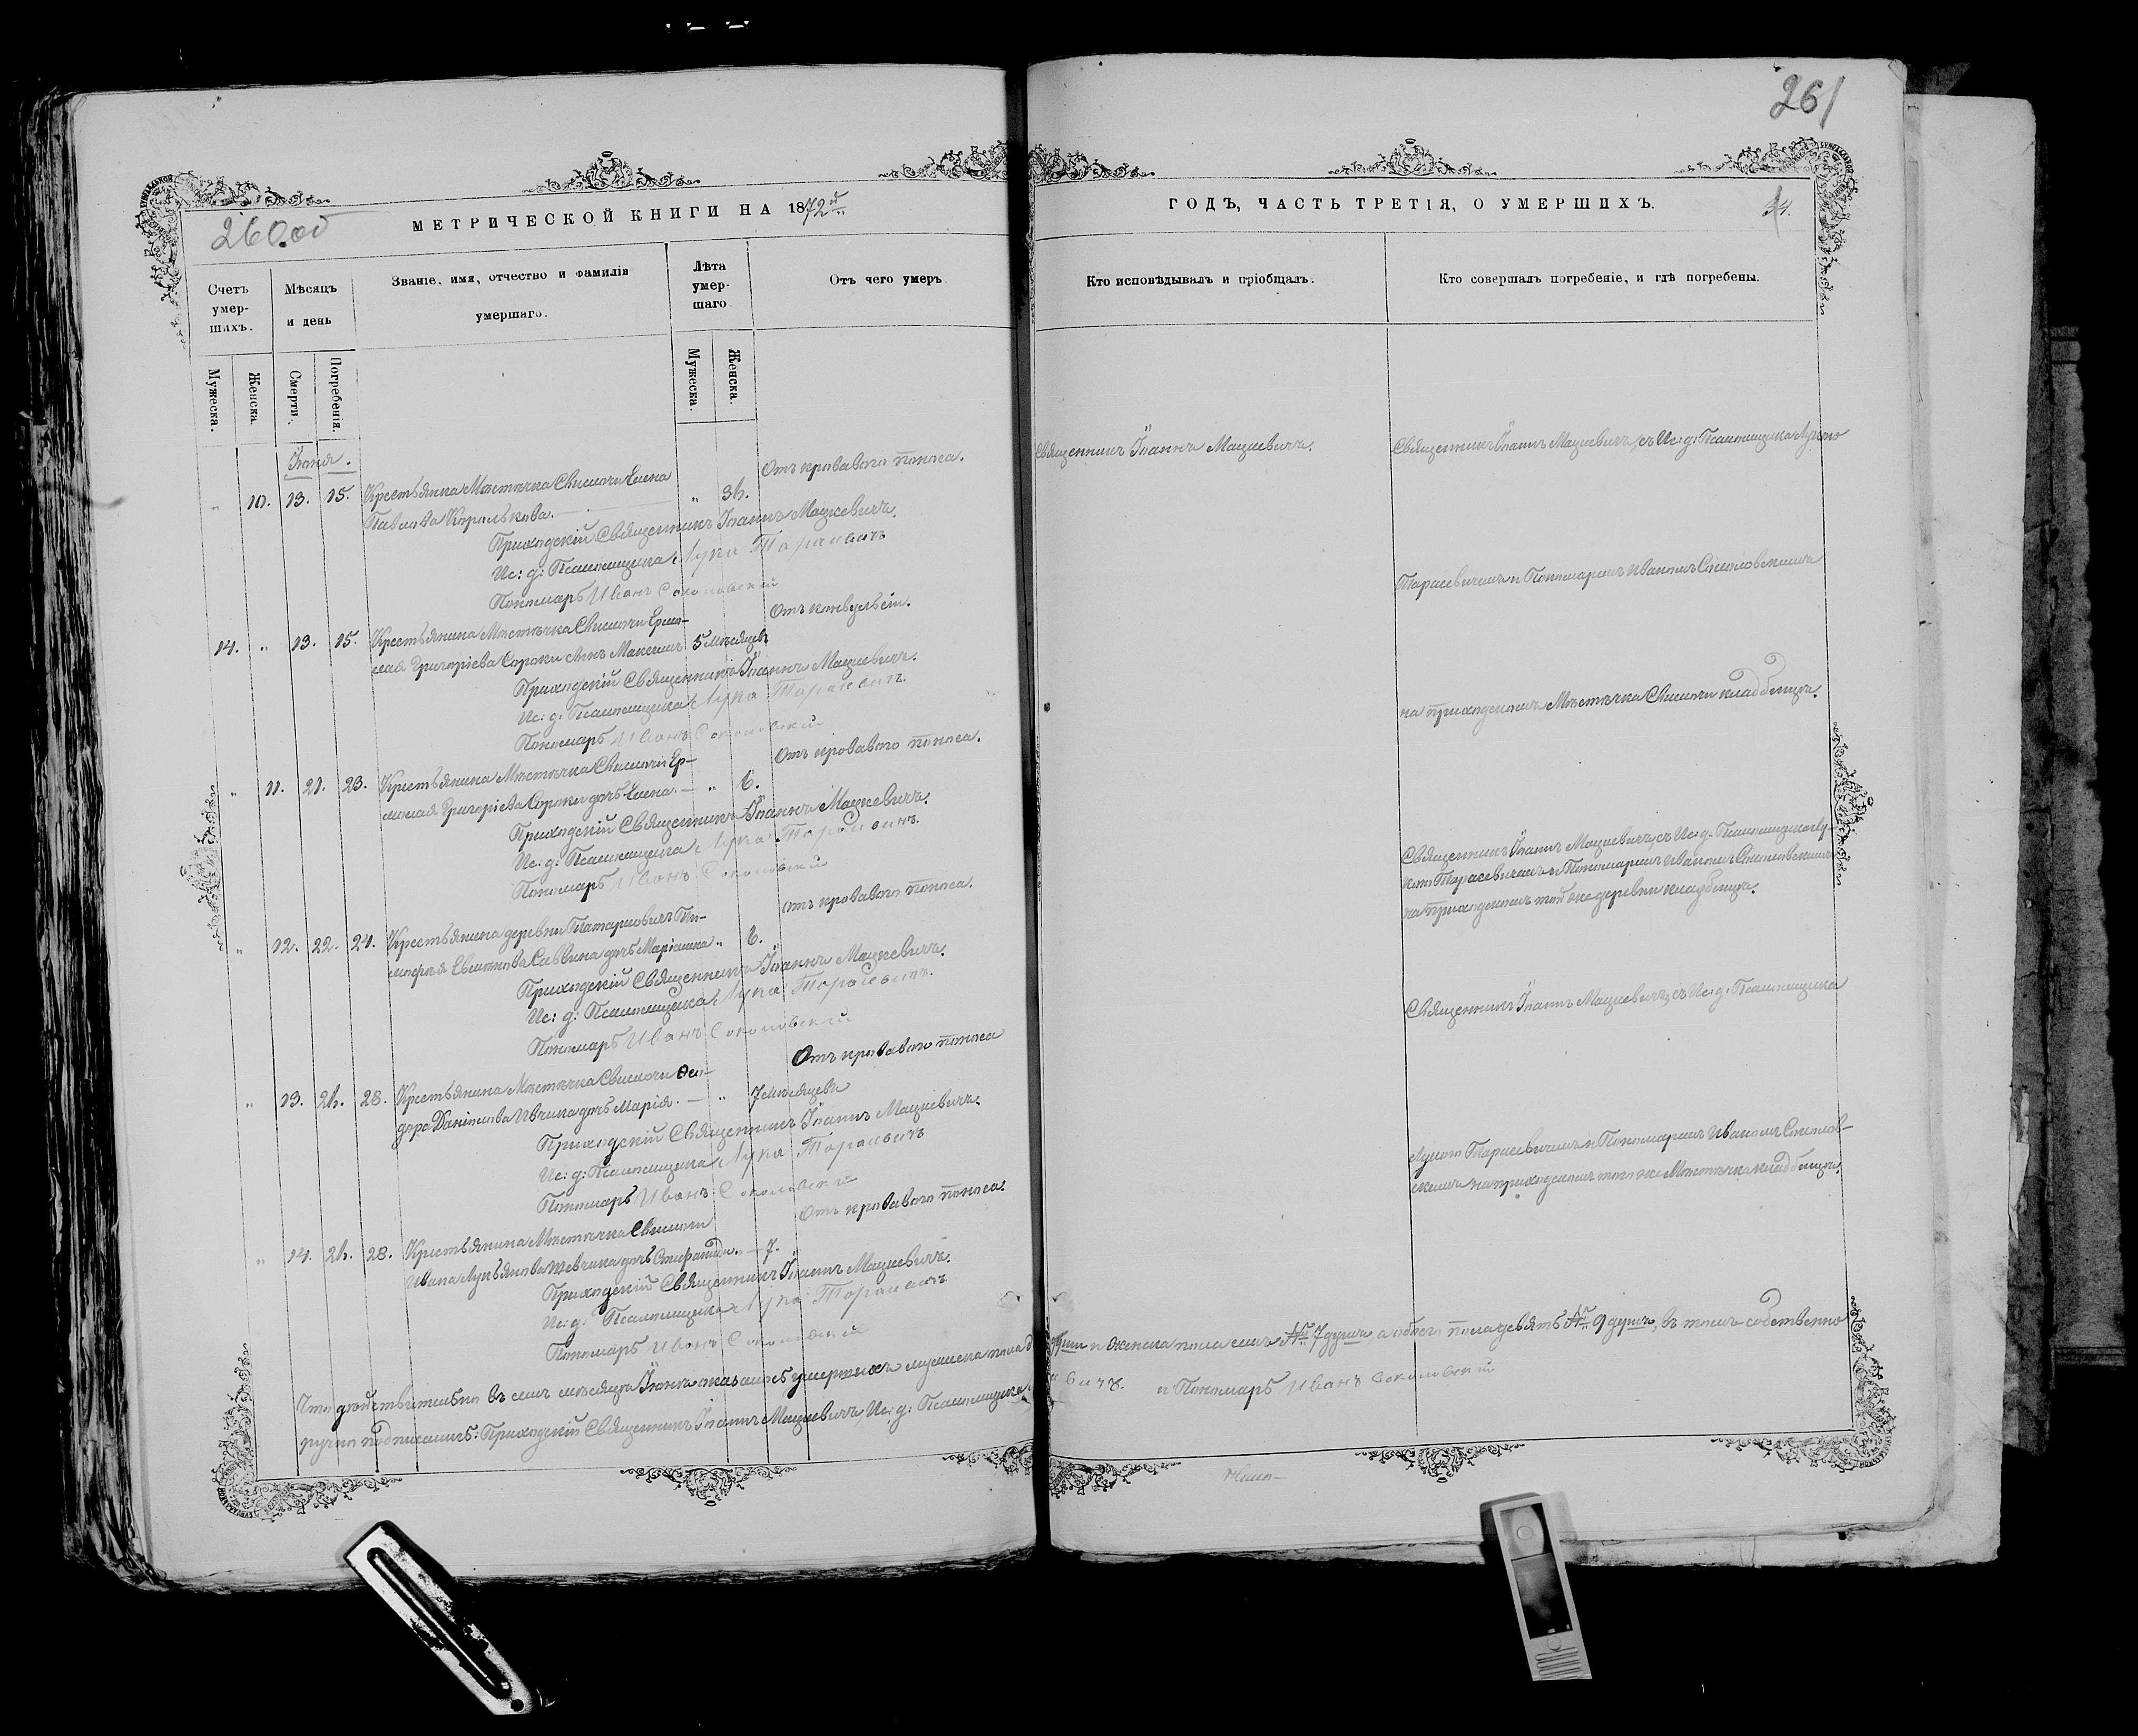 261
260об
МЕТРИЧЕСКОЙ КНИГИ НА 1872й
Счетъ умер-шихъ.
Мѣсяцъ и день
Званіе, имя, отчество и фамилія умершаго.
Лѣта умер-шаго.
Отъ чего умеръ
Мужеска.
Женска.
Смерти.
Погребенія.
Мужеска.
Женска.
Іюня.
Отъ кроваваго поноса.
" 10. 13. 15. Крестьянка Мѣстечка Свислочи Елена "
Павлова Королькова.
Приходскій Священникъ Іоаннъ Мацкевичъ.
Ис: д: Псаломщика Лука Тарасевичъ
Пономарь Иванъ Соколовскій
Отъ конвульсіи.
14. " 13. 15. Крестьянина Мѣстечка Свислочи Ермо-
лая Григоріева Сороки сынъ Максимъ 5 мѣсяцевъ
Приходскій Священникъ Іоаннъ Мацкевичъ.
Ис: д: Псаломщика Лука Тарасевичъ
Пономарь Иванъ Соколовскій
Отъ кроваваго поноса.
" 11. 21. 23. Крестьянина Мѣстечка Свислочи Ер-
молая Григоріева Сороки дочь Елена. " 6.
Приходскій Священникъ Іоаннъ Мацкевичъ.
Ис: д: Псаломщика Лука Тарасевичъ
Пономарь Иванъ Соколовскій
Отъ кроваваго поноса.
" 12. 22. 24. Крестьянина деревни Татарковичъ Ти-
мофея Савича дочь Маріанна " 6.
Приходскій Священникъ Іоаннъ Мацкевичъ.
Ис: д: Псаломщика Лука Тарасевичъ
Пономарь Иванъ Соколовскій
Отъ кроваваго поноса
" 13. 26. 28. Крестьянина Мѣстечка Свислочи Ѳео-
дора Даніилова дочь Марія. " 7 мѣсяцевъ
Приходскій Священникъ Іоаннъ Мацкевичъ.
Ис: д: Псаломщика Лука Тарасевичъ
Пономарь Иванъ Соколовскій
Отъ кроваваго поноса.
" 14. 26. 28. Крестьянина Мѣстечка Свислочи
Ивана Лукьянова дочь Стефанида. 7.
Приходскій Священникъ Іоаннъ Мацкевичъ.
Ис: д: Псаломщика Лука Тарасевичъ
Пономарь Иванъ Соколовскій
Что дѣйствительно въ семъ мѣсяцѣ Іюнѣ умершихъ мужеска пола
ручно подписались: Приходскій Священникъ Іоаннъ Мацкевичъ, Ис: д: Псаломщика
ГОДЪ, ЧАСТЬ ТРЕТІЯ, О УМЕРШИХЪ.
Кто исповѣдывалъ и пріобщалъ.
Кто совершалъ погребеніе, и гдѣ погребены.
Священникъ Іоаннъ Мацкевичъ.
Священникъ Іоаннъ Мацкевичъ, съ Ис: д: Псаломщика Лукою
Тарасевичемъ и Пономаремъ Иваномъ Соколовскимъ
на приходскомъ Мѣстечка Свислочи кладбищѣ.
Священникъ Іоаннъ Мацкевичъ, съ Ис: д: Псаломщика Лу-
кою Тарасевичемъ и Пономаремъ Иваномъ Соколовскимъ
на приходскомъ той же деревни кладбищѣ.
Священникъ Іоаннъ Мацкевичъ, съ Ис: д: Псаломщика
Лукою Тарасевичемъ и Пономаремъ Иваномъ Соколов-
скимъ на приходскомъ того же Мѣстечка кладбищѣ.
и женска пола семь № 7 душъ, а обоего пола девять № 9 душъ, въ томъ собственно
и Пономарь Иванъ Соколовскій